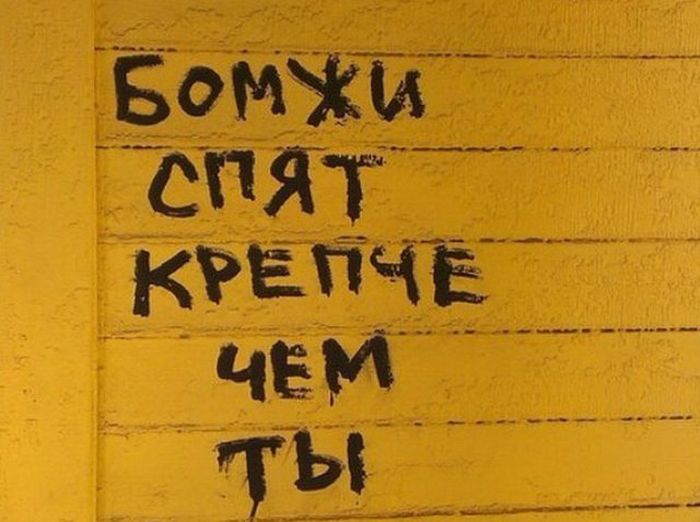 БОМЖИ
СПЯТ
КРЕПЧЕ
ЧЕМ
ТЫ